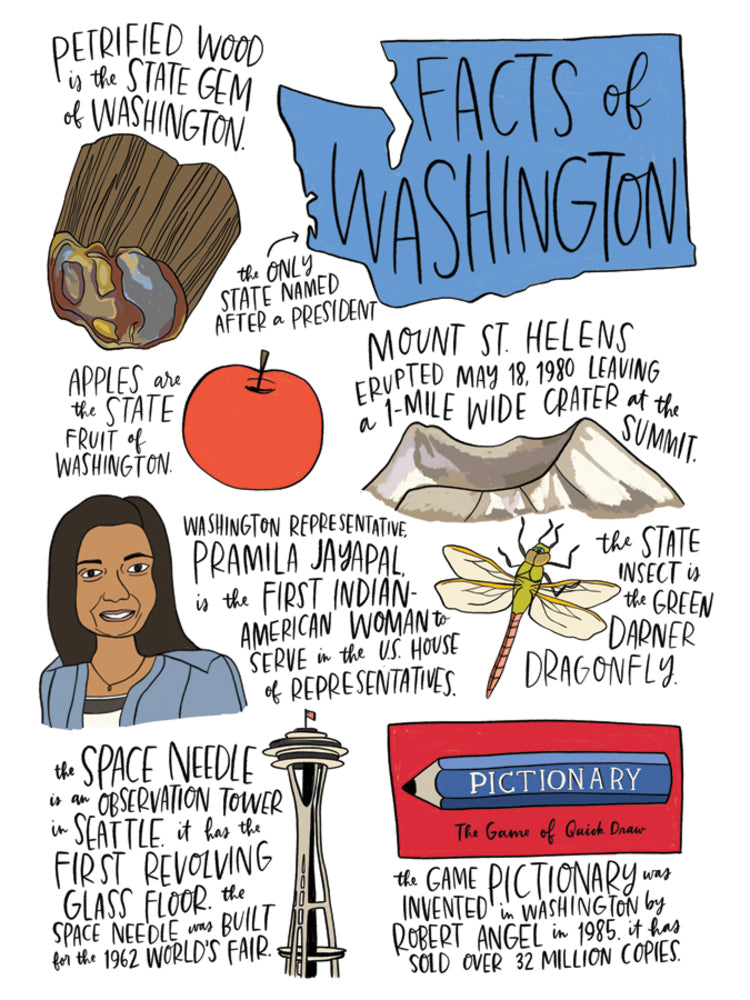 PETRIFIED WOOD
is the STATE GEM
of WASHINGTON.
FACTS of
WASHINGTON
the ONLY
STATE NAMED
AFTER a PRESIDENT
MOUNT ST. HELENS
ERUPTED MAY 18, 1980 LEAVING
a 1-MILE WIDE CRATER at the
SUMMIT.
APPLES are
the STATE
FRUIT of
WASHINGTON.
WASHINGTON REPRESENTATIVE,
PRAMILA JAYAPAL,
is the FIRST INDIAN-
AMERICAN WOMAN to
SERVE in the U.S. HOUSE
of REPRESENTATIVES.
the STATE
INSECT is
the GREEN
DARNER
DRAGONFLY.
the SPACE NEEDLE
is an OBSERVATION TOWER
in SEATTLE. it has the
FIRST REVOLVING
GLASS FLOOR. the
SPACE NEEDLE was BUILT
for the 1962 WORLD'S FAIR.
PICTIONARY
The Game of Quick Draw
the GAME PICTIONARY was
INVENTED in WASHINGTON by
ROBERT ANGEL in 1985. it has
SOLD OVER 32 MILLION COPIES.